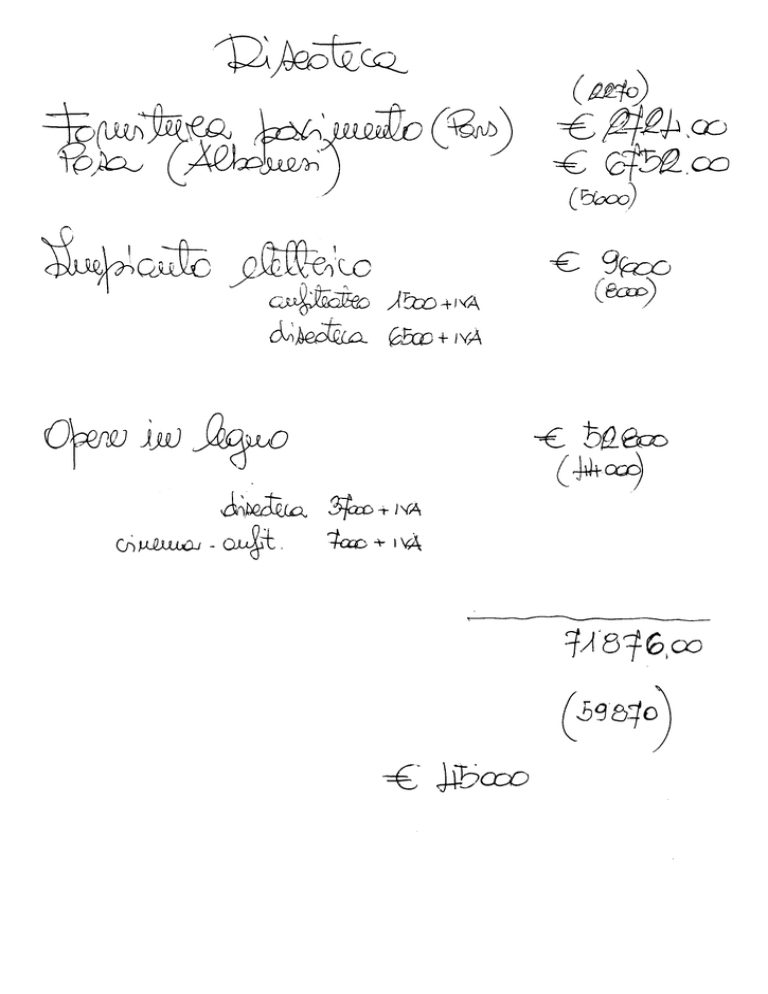 Discoteca
(2270)
Fornitura pavimento (Pars) € 2724.00
Posa (Albanesi) € 6752.00
(5600)
Impianto elettrico € 9600
anfiteatro 1500 + IVA (8000)
discoteca 6500 + IVA
Opere in legno € 52800
(44000)
discoteca 37000 + IVA
cinema - anfit. 7000 + IVA
71876,00
(59870)
€ 45000